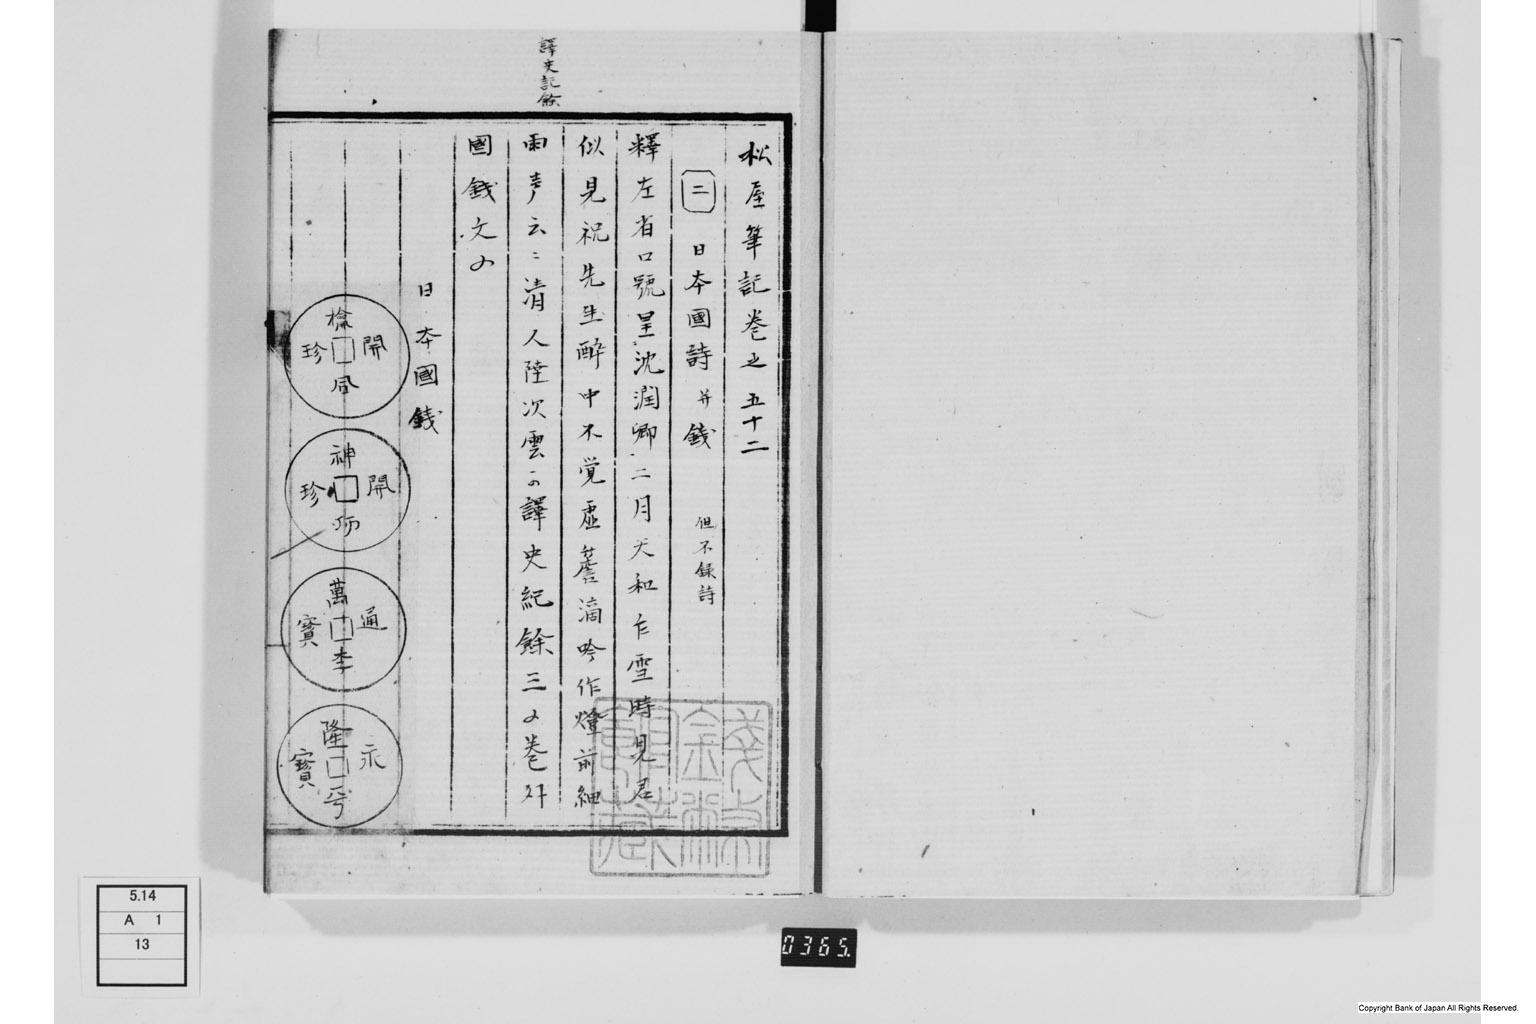 譯史記餘
松屋筆記卷之五十二
二 日本國詩并錢 但不錄詩
釋左省口號呈沈潤卿二月天和乍雪時見君
似見祝先生醉中不覚虛簷滴吟作燈前細
雨声云〻清人陸次雲か譯史紀餘三ノ巻外
國錢文の
日本國錢
開珍
神開珍
萬通寶
隆永平寶
5.14
A 1
13
0365.
Copyright Bank of Japan All Rights Reserved.